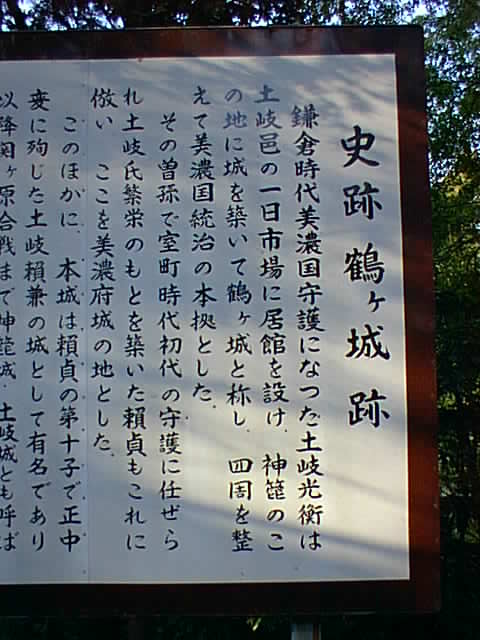 史跡 鶴ヶ城跡
鎌倉時代美濃国守護になつた土岐光衡は
土岐邑の一日市場に居館を設け、神箆のこ
の地に城を築いて鶴ヶ城と称し、四周を整
えて美濃国統治の本拠とした。
その曽孫で室町時代初代の守護に任ぜら
れ土岐氏繁栄のもとを築いた頼貞もこれに
倣い ここを美濃府城の地とした。
このほかに 本城は頼貞の第十子で正中
変に殉じた土岐頼兼の城として有名であり
以降関ヶ原合戦まで神箆城・土岐城とも呼ば